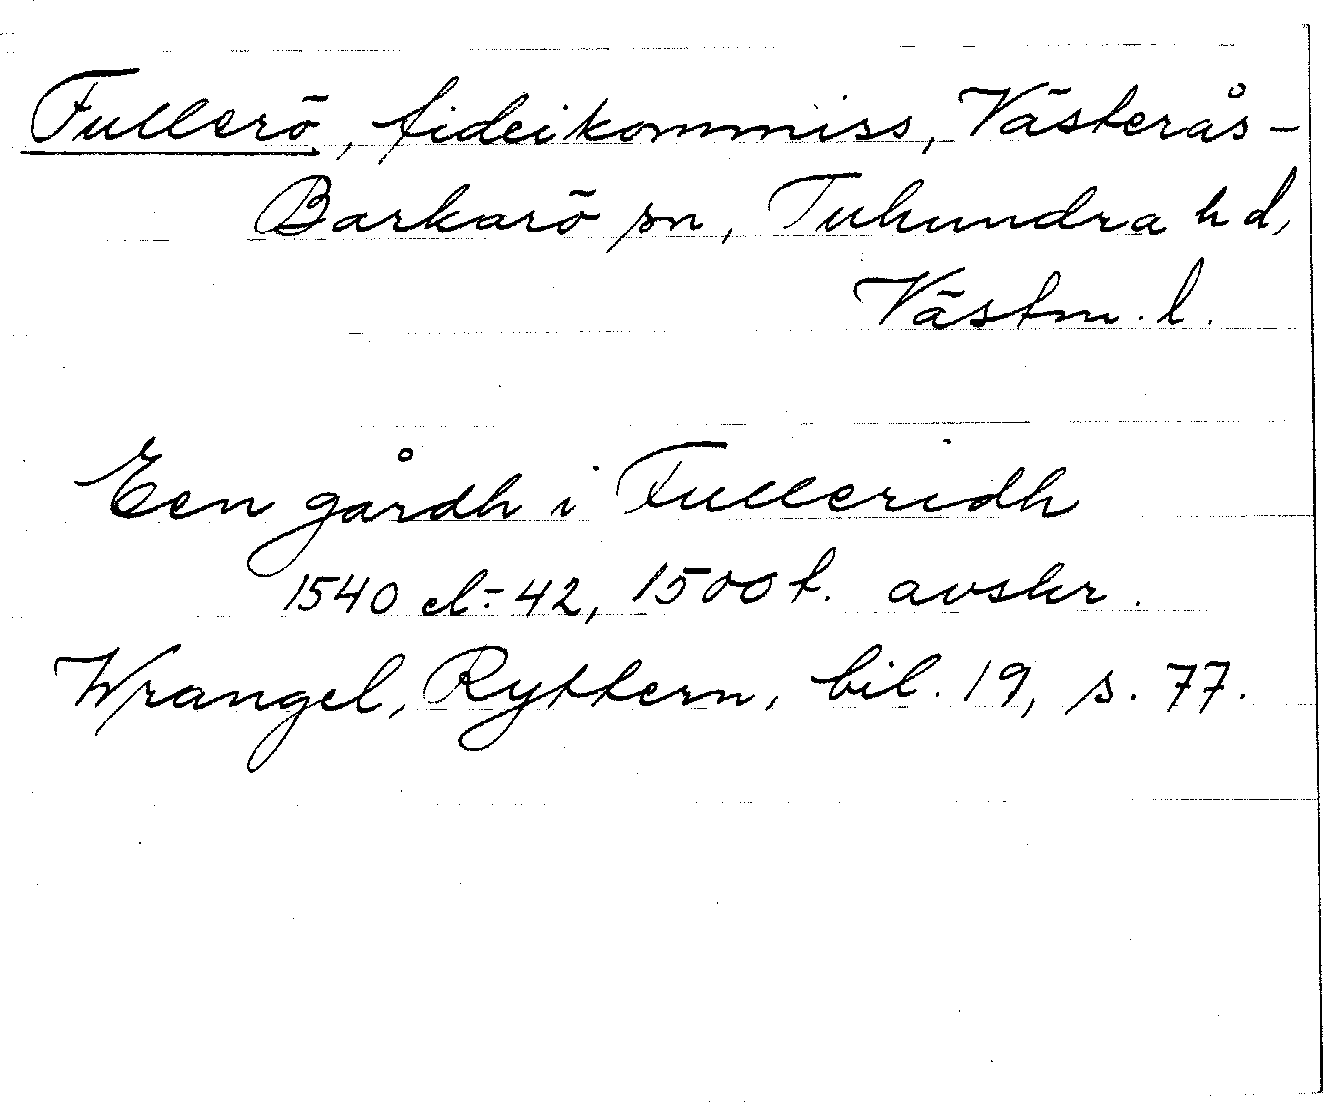 Fullerö, fideikommiss, Västerås-
Barkarö sn, Tuhundra hd,
Västm. l.
Een gårdh i Fulleridh
1540 el.-42, 1500 t. avskr.
Wrangel, Ryttern, bil. 19, s. 77.